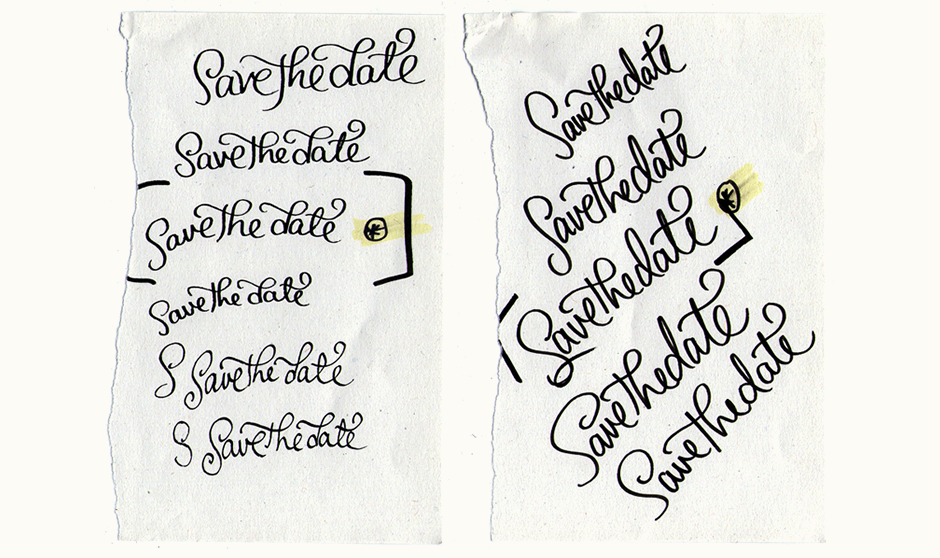 Save the date
Save the date
Save the date *
Save the date
S Save the date
S Save the date
Save the date
Save the date
Save the date *
Save the date
Save the date